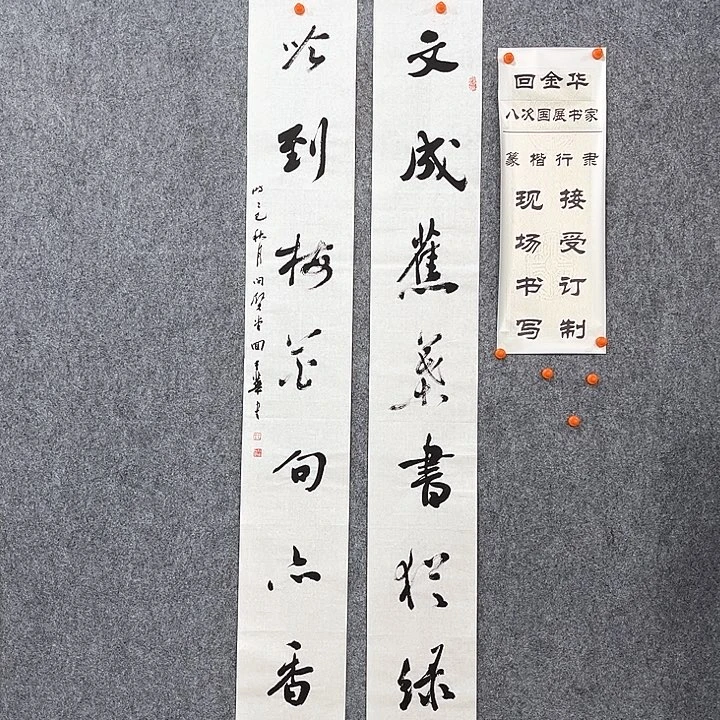 文成蕉葉書犹绿
吟到梅花句亦香
乙巳秋月 回金華书
回金华
八次国展书家
篆楷行隶
接受订制
现场书写